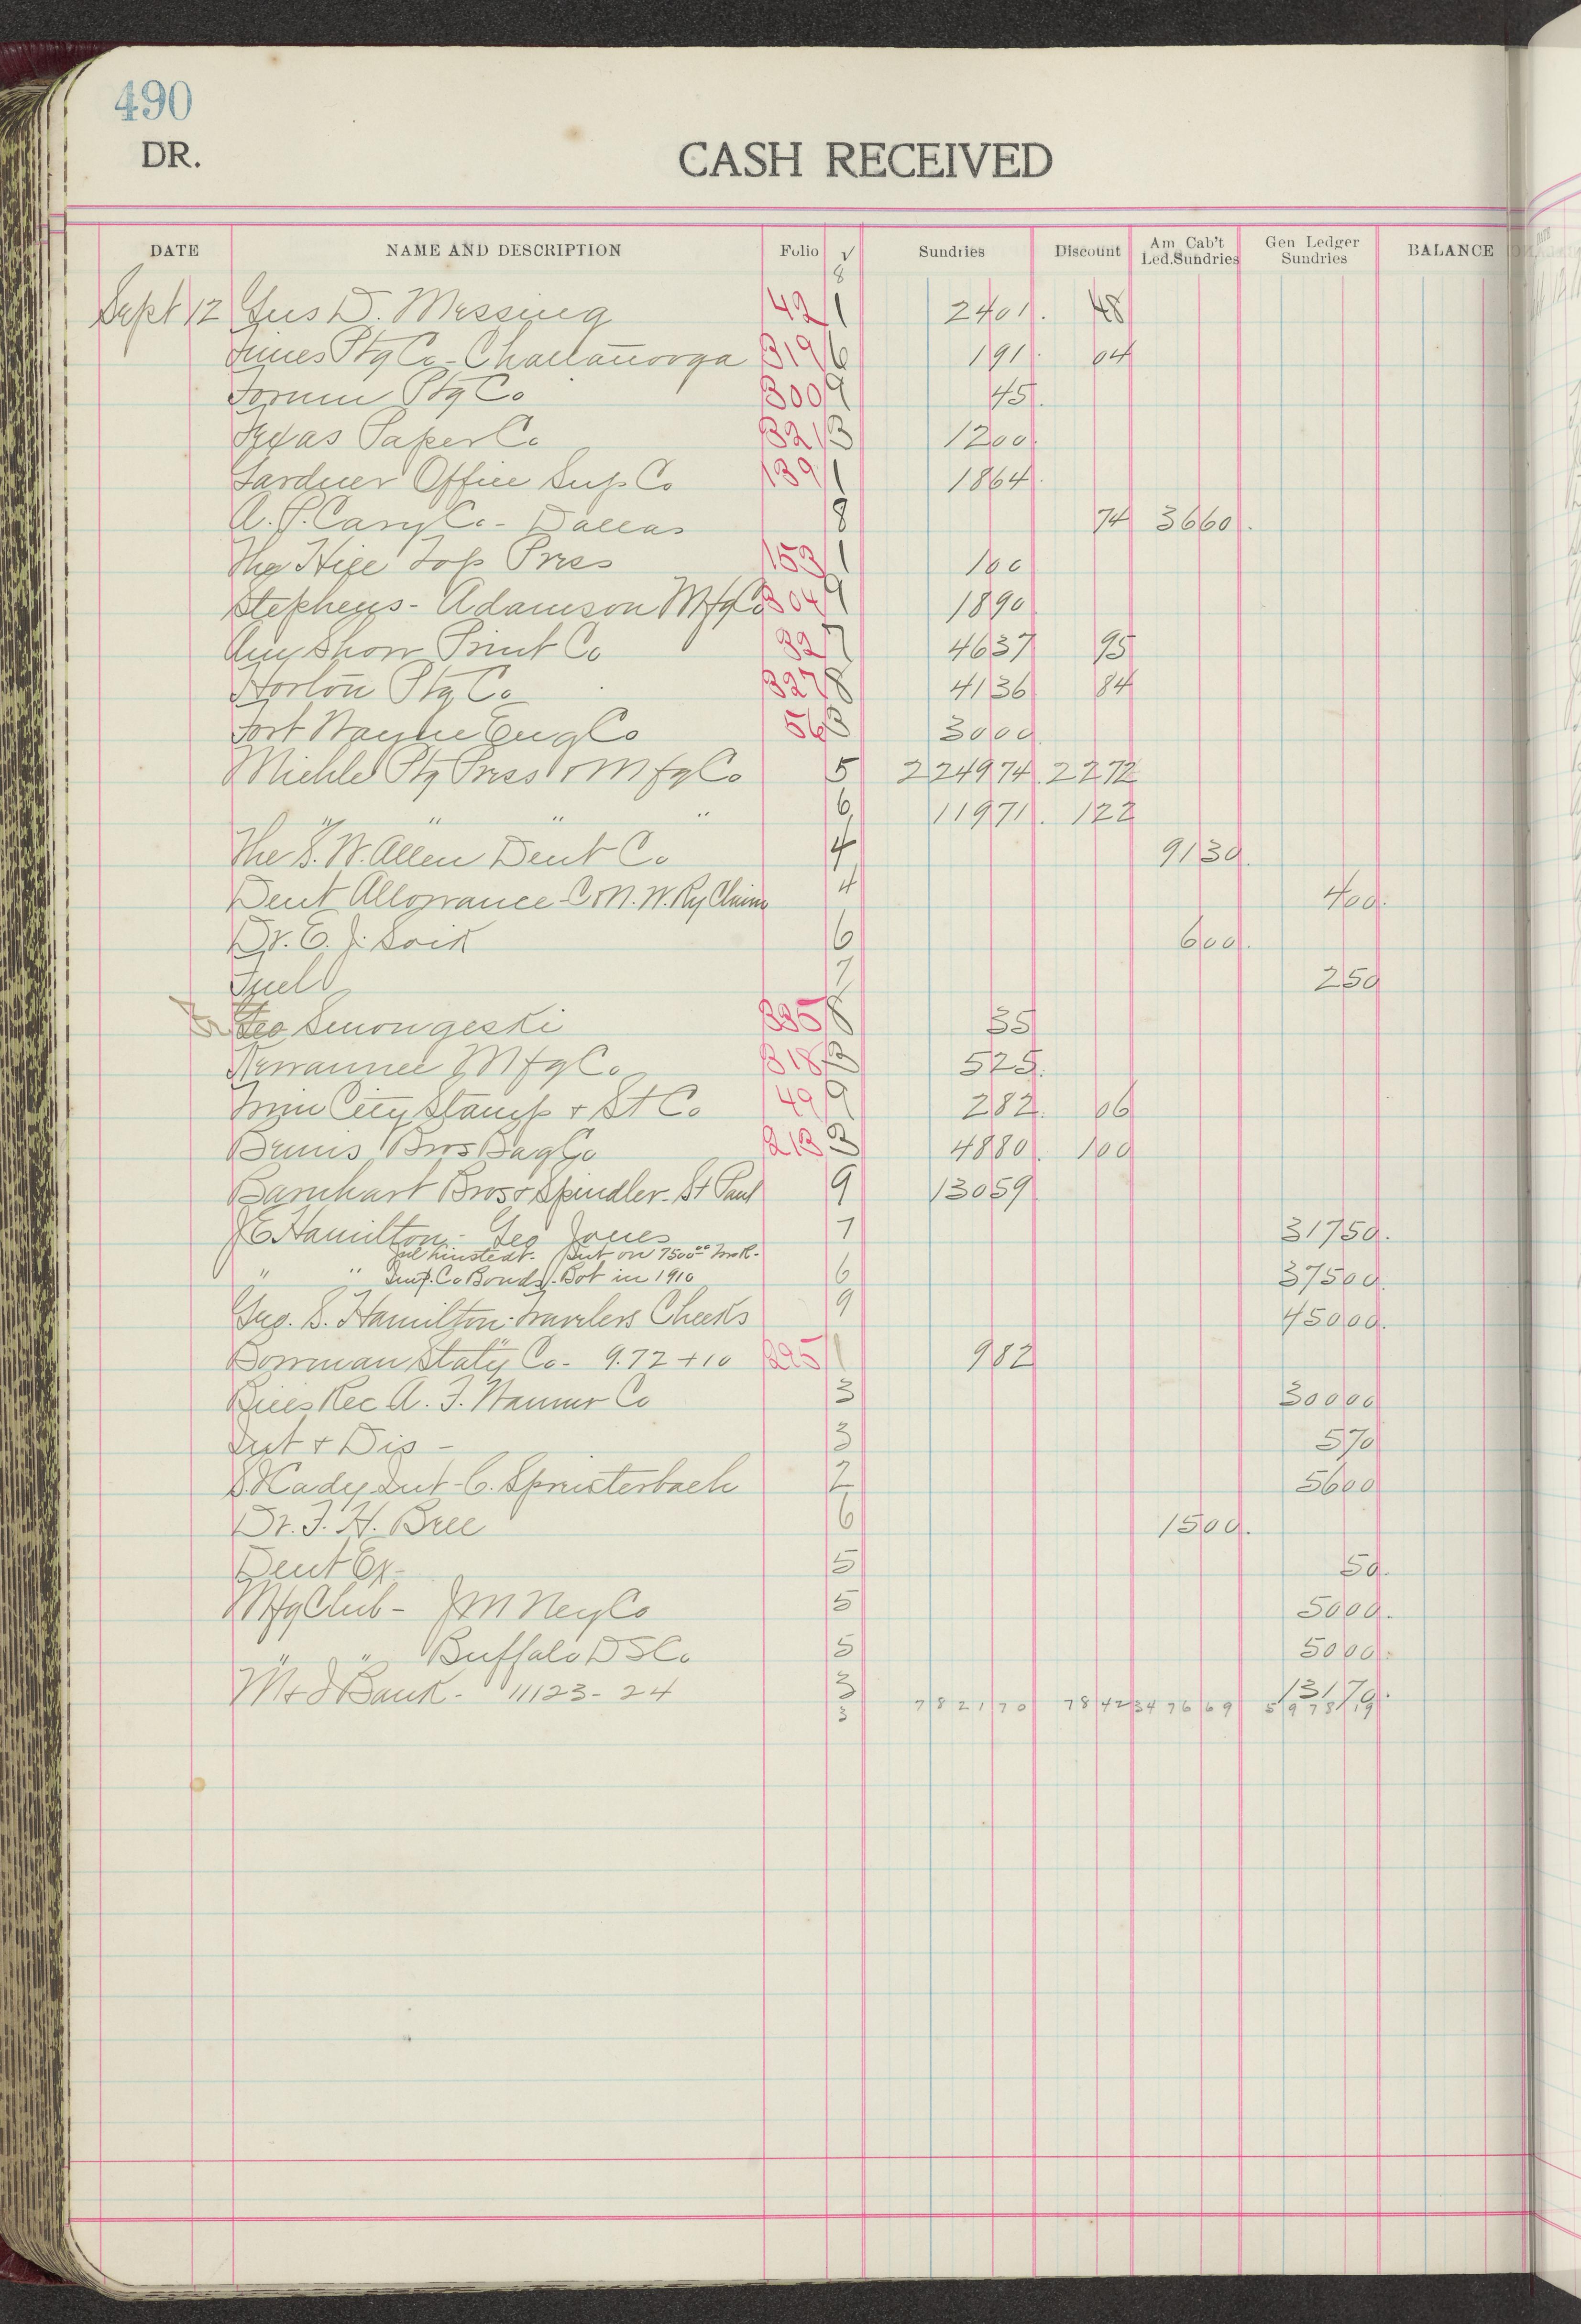 490
DR.
CASH RECEIVED
DATE NAME AND DESCRIPTION Folio √ Sundries Discount Am Cab't Led.Sundries Gen Ledger Sundries BALANCE
8
Sept 12 Gus D. Messing 42 1 2401. 48
Times Ptg Co - Chattanooga 319 6 191. 04
Forum Ptg Co 300 9 45.
Texas Paper Co 321 3 1200.
Gardner Office Sup Co 139 1 1864.
A. P. Cary Co - Dallas 8 74 3660.
The Hill Top Press 153 1 100
Stephens - Adamson Mfg Co 304 9 1890
Amy Show Print Co 32 7 4637 95
Horton Ptg Co 327 8 4136 84
Fort Wayne Eng Co 56 3 3000
Miehle Ptg Press & Mfg Co 5 224974. 2272
" " " " 6 11971. 122
The S. W. Allen Dent Co 4 9130.
Dent Allowance - C&N.W. Ry Claim 4 400.
Dr. E. J. Soik 6 600.
Fuel 7 250
Geo Smongeski 335 8 35
Kewaunee Mfg Co 318 3 525.
Twin City Stamp & St Co 49 9 282. 06
Bemis Bros Bag Co 213 3 4880. 100
Barnhart Bros & Spindler - St Paul 9 13059
J E Hamilton - Geo Jones 7 31750.
Jul Kinstedt - Int on 7500.00
" " Imp. Co Bonds - Bot in 1910 6 37500.
Geo. S. Hamilton - Travelers Checks 9 45000.
Bowman Stat'y Co - 9.72 + 10 295 1 982
Bills Rec A. F. Wanner Co 3 30000
Int & Dis - 3 570
Cady Int - C. Spreisterbach 2 5600
Dr. F. H. Bell 6 1500.
Dent Ex - 5 50.
Mfg Club - J M Ney Co 5 5000.
" " Buffalo D S Co 5 5000.
M & I Bank - 11123 - 24 3 13170.
3 782170 7842 347669 597819